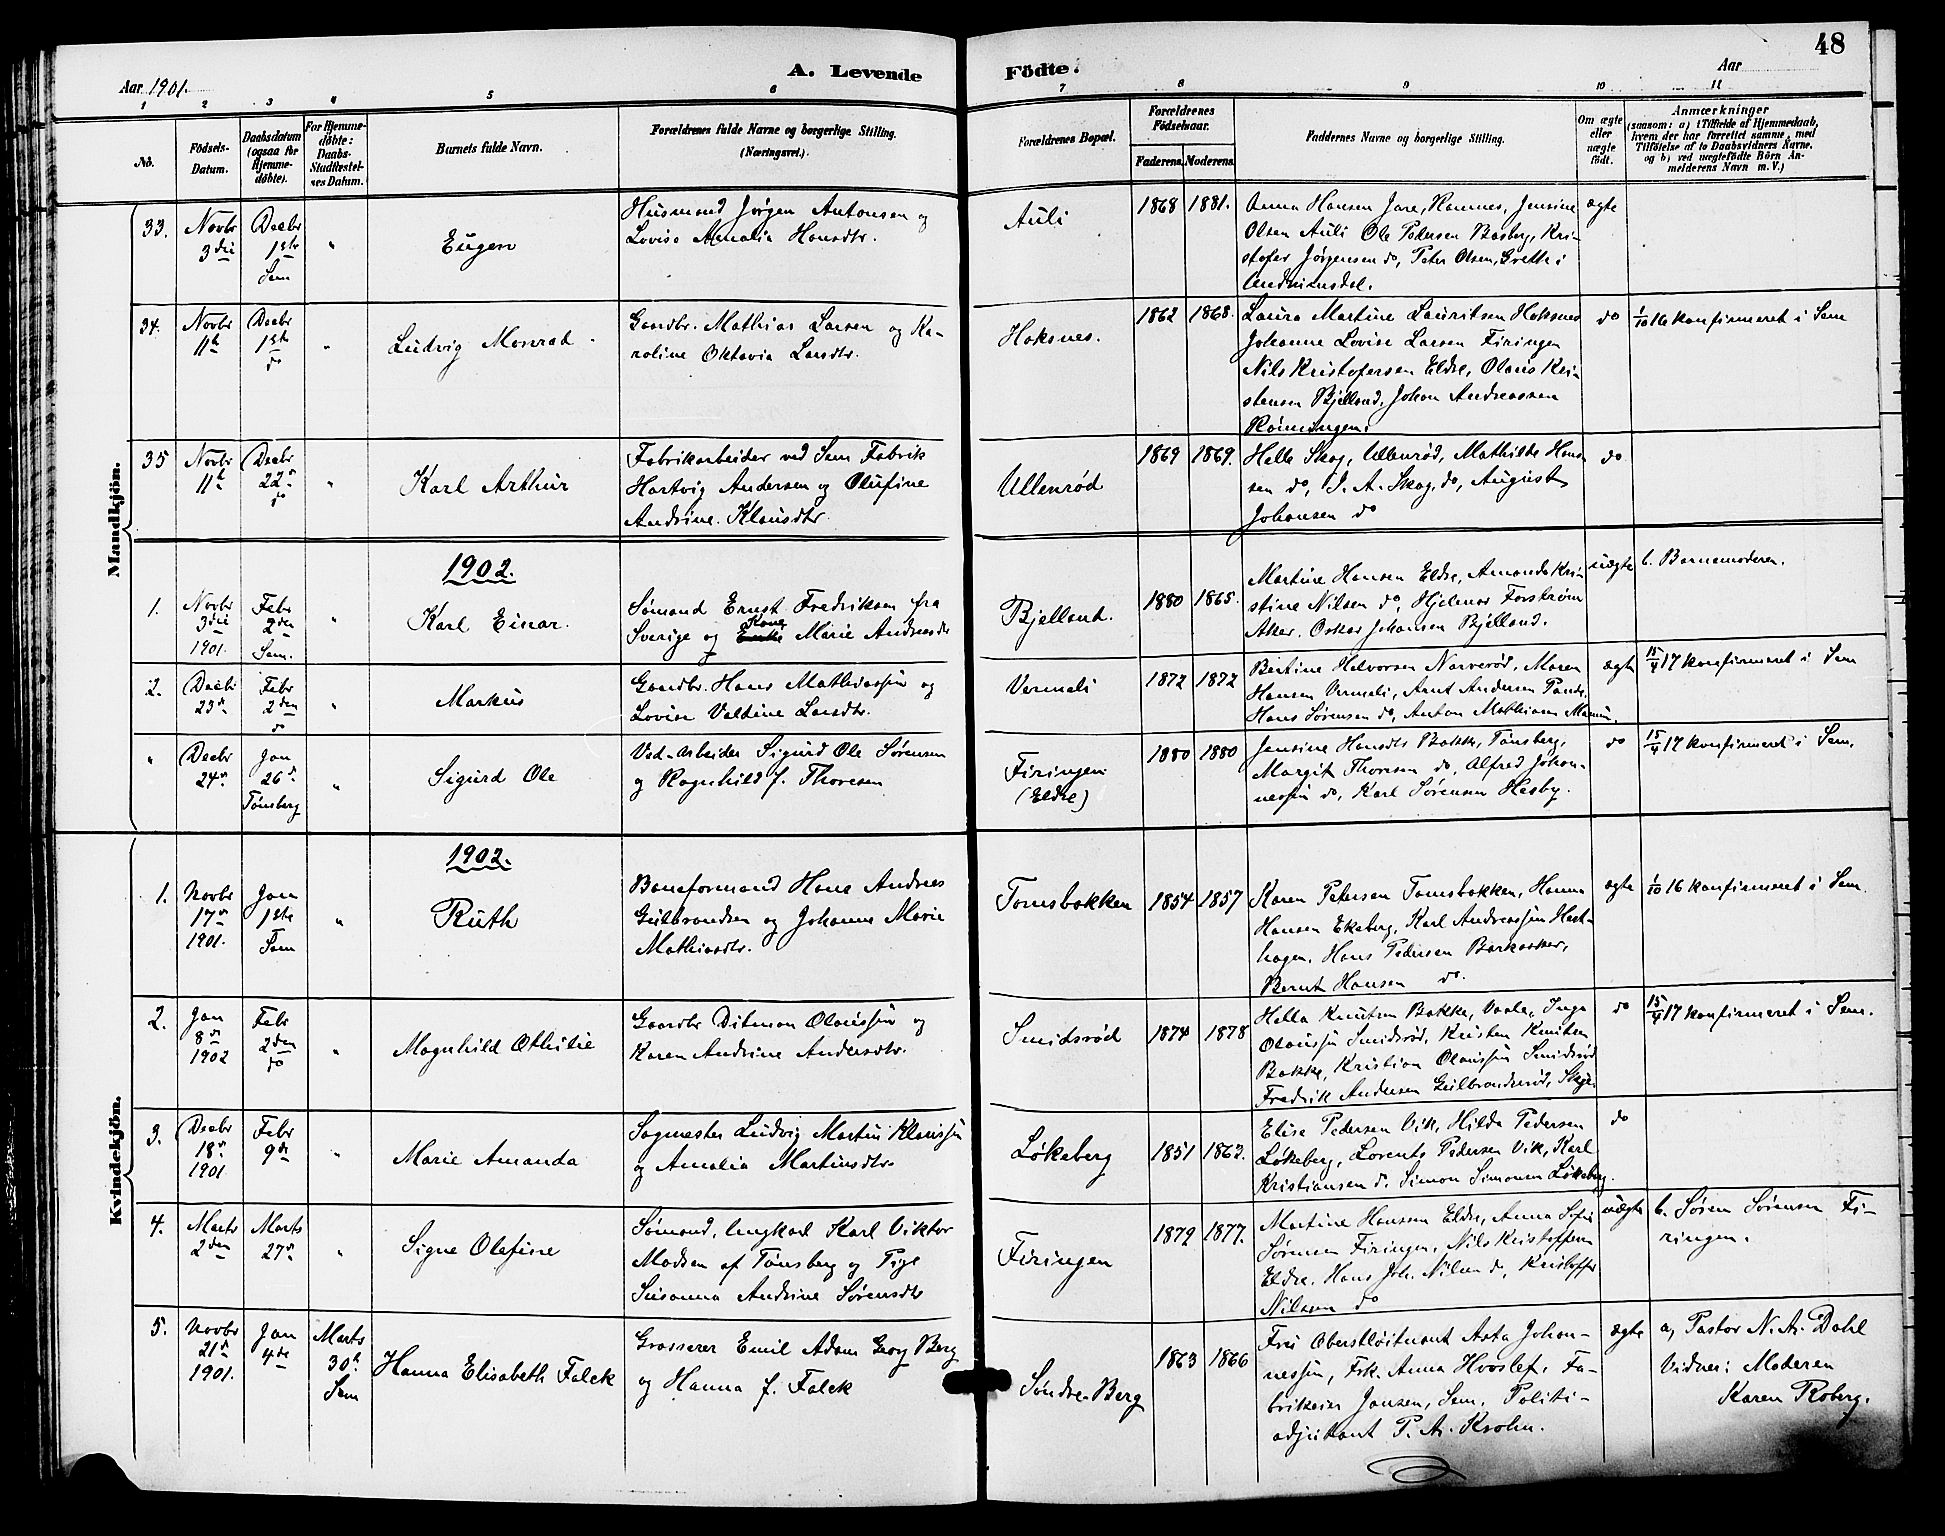 48
Aar 1901.
A. Levende Födte.
Aar
1 2 3 4 5 6 7 8 9 10 11
No.
Födsels-Datum.
Daabsdatum (ogsaa for Hjemme-døbte).
For Hjemme-døbte: Daabs-Stadfæstel-ses Datum.
Barnets fulde Navn.
Forældrenes fulde Navne og borgerlige Stilling. (Næringsvei.)
Forældrenes Bopæl.
Forældrenes Födselsaar.
Faderens. Moderens.
Faddernes Navne og borgerlige Stilling.
Om ægte eller uægte födt.
Anmærkninger
(saasom: a) i Tilfælde af Hjemmedaab,
hvem der har forrettet samme, med
Tilföielse af to Daabsvidners Navne,
og b) ved uægtefödte Börn An-
melderens Navn m. V.)
Mandkjön.
33. Novbr 3die
Decbr 1ste Sem
"
Eugen
Husmand Jørgen Antonsen og
Lovise Amalia Hansdtr.
Auli
1868 1881.
Anna Hansen Jare, Ramnes, Jensine
Olsen Auli Ole Pedersen Basberg, Kri-
stofer Jørgensen do, Peter Olsen, Grette i
Andebusdal.
ægte
34. Novbr 11te
Decbr 1ste do
"
Ludvig Monrad.
Gaardbr. Mathias Larsen og Ka-
roline Oktavia Larsdtr.
Haksnes.
1862 1868.
Laura Martine Lauritsen Haksnes
Johanne Lovise Larsen Firingen
Nils Kristofersen Eldre, Olaus Kri-
stensen Bjelland, Johan Andreassen
Rønningen.
do
1/10 16 konfirmeret i Sem
35 Novbr 11te
Decbr 22de do
"
Karl Arthur
Fabrikarbeider ved Sem Fabrik
Hartvig Andersen og Olufine
Andrine Klausdtr.
Ullenrød
1869 1869.
Helle Skag, Ullenrød, Mathilde Han-
sen do, J. A. Skag, do, August
Johansen do
do
1902.
1. Novbr 3die 1901.
Febr 2den Sem.
"
Karl Einar.
Sømand Ernst Fredriksen fra
Sverige og Kone Marie Andreasdtr
Bjelland.
1880 1865.
Martine Hansen Eldre, Amanda Kri-
stine Nilsen do, Hjelmar Forstrøm
Aker. Oskar Johansen Bjelland.
uægte
b. Barnemoderen.
2. Decbr 23de
Febr 2den do
"
Markus
Gaardbr. Hans Mathiassen og
Lovise Valtine Larsdtr.
Vermeli
1872 1872
Bertine Halvorsen Narverød, Maren
Hansen Vermeli, Arnt Andersen
Hans Sørensen do, Anton Mathiasen
ægte
15/4 17 konfirmeret i Sem
" Decbr 24de
Jan 26de Tønsberg
"
Sigurd Ole
Ved-Arbeider Sigurd Ole Sørensen
og Ragnhild f. Thoresen
Firingen
(Eldre)
1880 1880
Jensine Hansdtr Bakke, Tønsberg,
Margit Thoresen do, Alfred Johan-
nessen do, Karl Sørensen Hesby.
do
15/4 17 konfirmeret i Sem.
Kvindekjön.
1902.
1. Novbr 17de 1901.
Jan 1ste Sem
"
Ruth
Baneformand Hans Andreas
Gulbrandsen og Johanne Marie
Mathiasdtr.
Tomsbakken
1854 1857
Karen Petersen Tomsbakken, Hanna
Hansen Ekeberg, Karl Andreassen
hagen. Hans Pedersen Barkaaker,
Bernt Hansen do.
ægte
1/10 16 konfirmeret i Sem.
2. Jan 8de 1902
Febr 2den do
"
Magnhild Othilie
Gaardbr Ditman Olaussen og
Karen Andrine Andersdtr.
Smidsrød
1874 1878
Hella Knutsen Bakke, Vaale, Inga
Olaussen Smidsrød, Kristen Knutsen
Bakke, Kristian Olaussen Smidsrød
Fredrik Andersen Gulbrandsrød,
do
15/4 17 konfirmeret i Sem.
3. Decbr 18de 1901.
Febr 9de
"
Marie Amanda
Sagmester Ludvig Martin Klaussen
og Amalia Martinsdtr.
Løkeberg
1851 1862.
Elise Pedersen Vik, Hilda Pedersen
Løkeberg, Lorents Pedersen Vik, Karl
Kristiansen do. Simon Simonsen Løkeberg.
do
4. Marts 2den
Marts 27de
"
Signe Olefine
Sømand, Ungkarl Karl Viktor
Madsen af Tønsberg og Pige
Susanna Andrine Sørensdtr
Firingen
1879 1877.
Martine Hansen Eldre, Anna Sofie
Sørensen Firingen, Nils Kristoffersen
Eldre. Hans Joh. Nilsen do, Kristoffer
Nilsen do
uægte
b. Søren Sørensen Fi-
ringen.
5. Novbr 21de 1901.
Jan 4de
Marts 30te Sem
Hanna Elisabeth Falck
Grosserer Emil Adam Georg Berg
og Hanna f. Falck
Søndre Berg
1863 1866
Fru Oberstløitnant Asta Johan-
nessen, Frk. Anna Hvoslef, Fa-
brikeier Jansen, Sem, Politi-
adjutant P. A. Krohn.
ægte
a, Pastor N. A. Dahl
Vidner: Moderen
Karen Roberg.